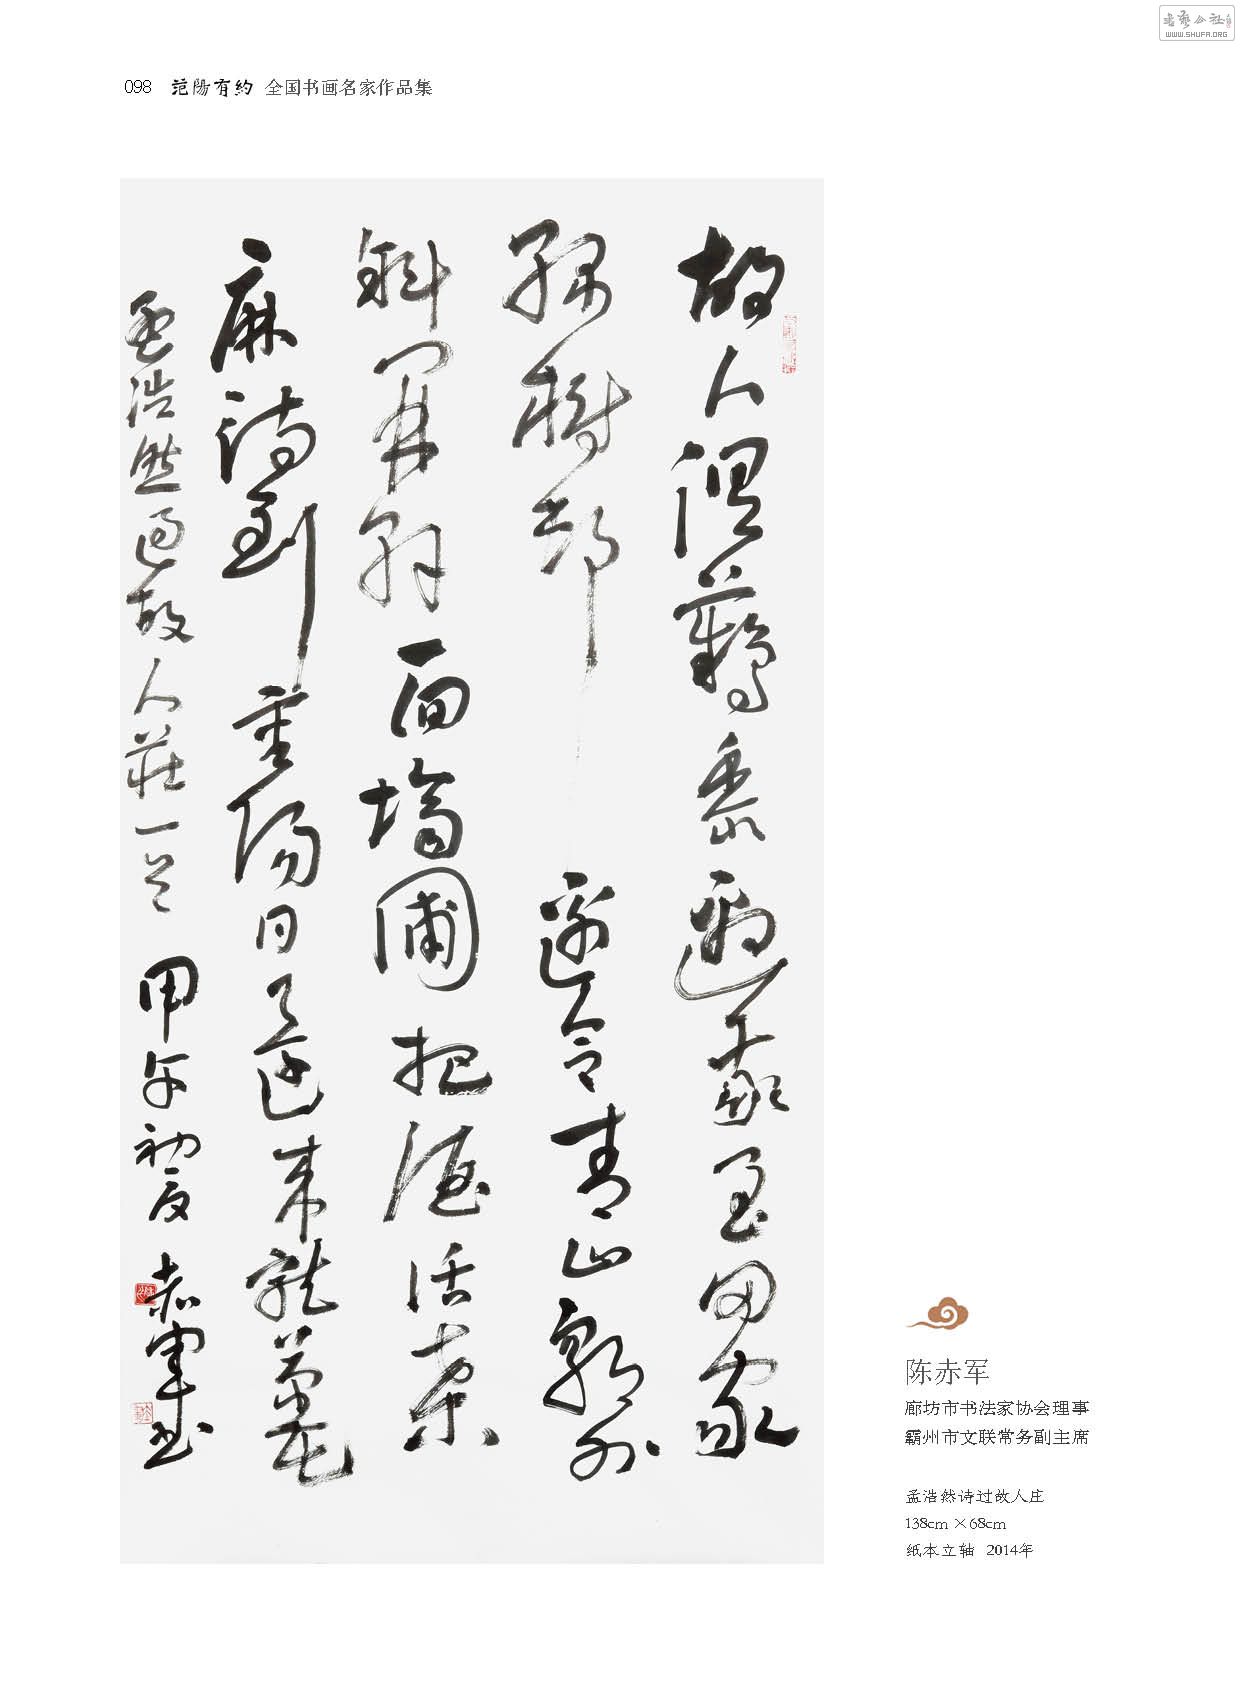 書藝公社
WWW.SHUFA.ORG
098 范陽有約 全国书画名家作品集
故人俱鷄黍邀我至田家
綠樹邨邊合青山郭外
斜開軒面場圃把酒話桑
麻待到重陽日還來就菊花
孟浩然過故人莊一首 甲午初夏 赤軍書
陈赤军
廊坊市书法家协会理事
霸州市文联常务副主席
孟浩然诗过故人庄
138cm×68cm
纸本立轴 2014年